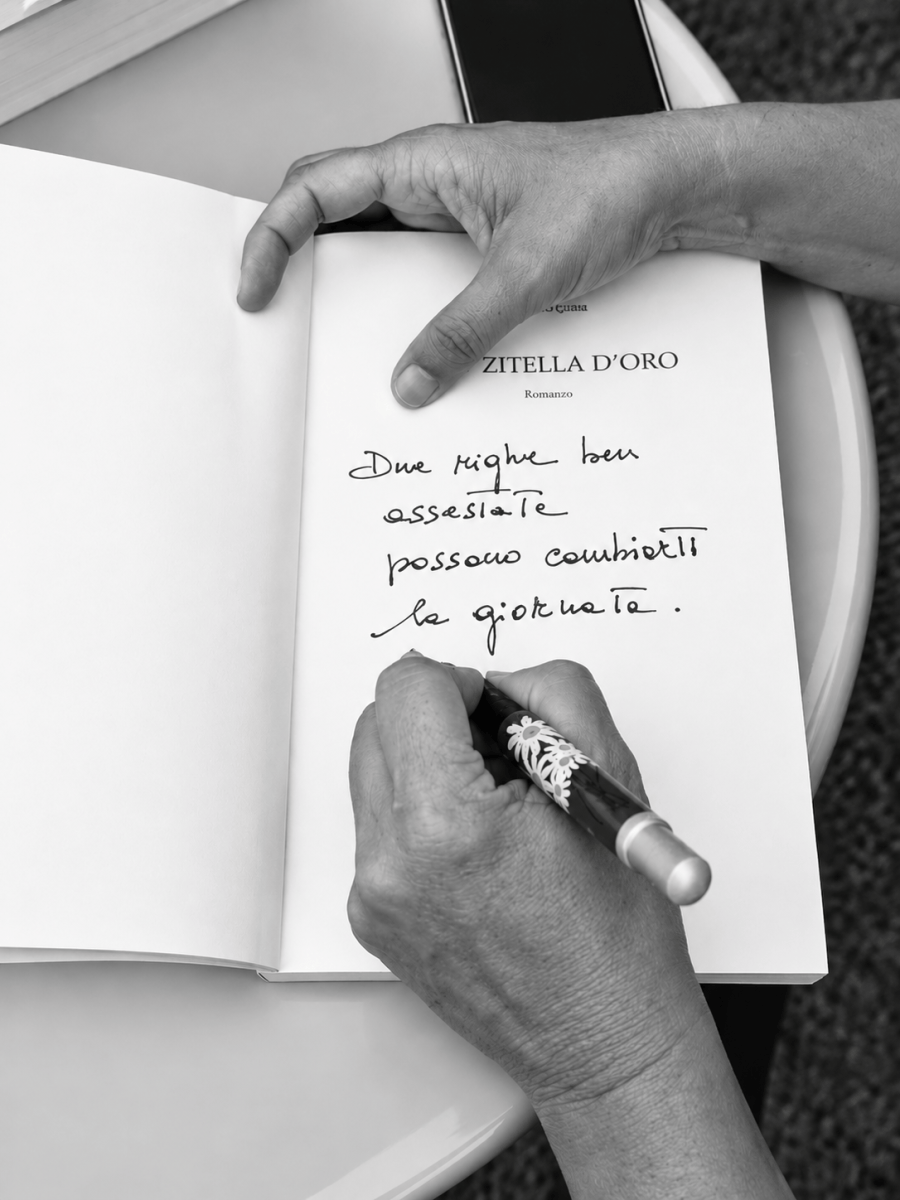 ZITELLA D'ORO
Romanzo
Due righe ben
assestate
possono cambiarti
la giornata.